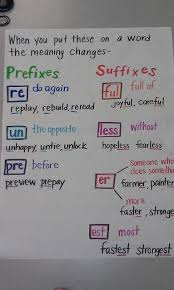 When you put these on a word
the meaning changes-
Prefixes
re do again
replay, rebuild, reread
un the opposite
unhappy, untie, unlock
pre before
preview prepay
Suffixes
ful full of
joyful, careful
less without
hopeless fearless
er Someone who
does something
farmer, painter
more
faster, stronge
est most
fastest strongest